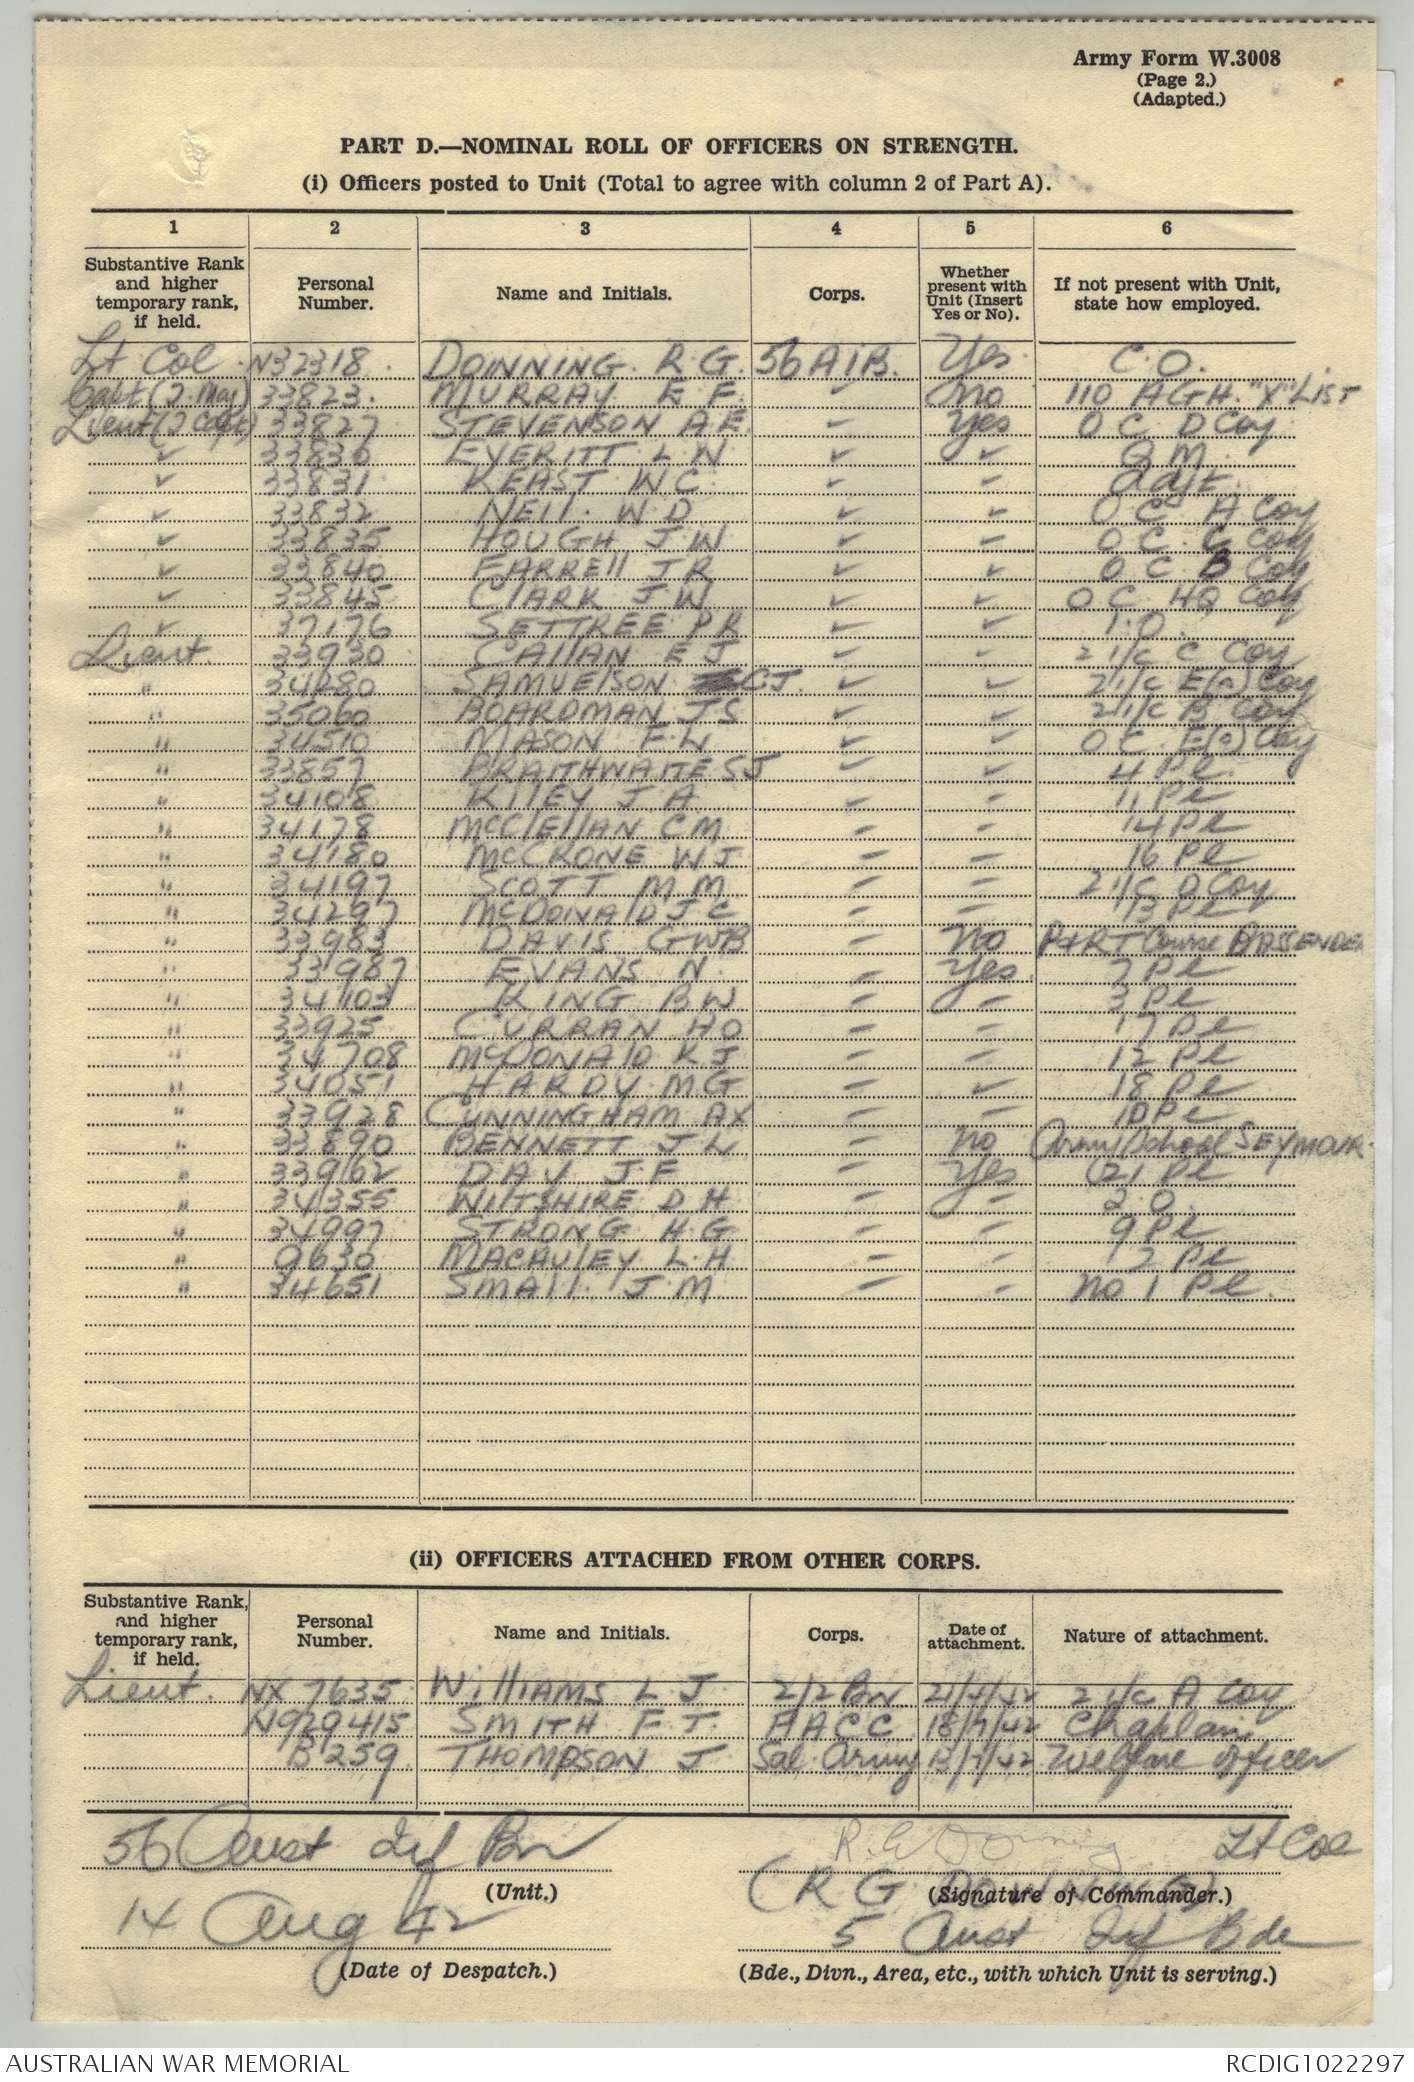 Army Form W.3008
(Page 2.)
(Adapted.)
PART D.—NOMINAL ROLL OF OFFICERS ON STRENGTH.
(i) Officers posted to Unit (Total to agree with column 2 of Part A).
1 2 3 4 5 6
Substantive Rank and higher temporary rank, if held. Personal Number. Name and Initials. Corps. Whether present with Unit (Insert Yes or No). If not present with Unit, state how employed.
Lt Col. N32318. DOINNING. R. G. 56 AIB. Yes C.O.
Capt (T. Maj) 33823. MURRAY E F. ✓ No 110 AGH. "X" LIST
Lieut (T Capt) 33827 STEVENSON A.E. ✓ Yes O C D Coy
✓ 33830 EVERITT L W ✓ ✓ Q M.
✓ 33831 KEAST W C ✓ ✓ Adjt.
✓ 33832 NEll. W D ✓ ✓ O C A Coy
✓ 33835 HOUGH J W ✓ ✓ O C C Coy
✓ 33840 FARREll J R ✓ ✓ O C B Coy
✓ 33845 ClARK J W ✓ ✓ O C HQ Coy
✓ 37176 SETTREE P R ✓ ✓ I. O.
Lieut. 33930 CAllAN E J ✓ ✓ 2 I/c C Coy
" 34280 SAMUElSON CJ. ✓ ✓ 2 I/c E(a) Coy
" 35060 BOARDMAN J S ✓ ✓ 2 I/c B Coy
" 34510 MASON F. W ✓ ✓ O C E(a) Coy
" 33857 BRAITHWAITE S J ✓ ✓ 4 Pl.
" 34108 KIlEY J A ✓ ✓ 11 Pl
" 34178 McClEllAN C M ✓ ✓ 14 Pl
" 34180 McCRONE W J ✓ ✓ 16 Pl
" 34197 SCOTT M M ✓ ✓ 2 I/c D Coy
" 34297 McDONAlD J C ✓ ✓ 13 Pl
" 33983 DAVIS GWB ✓ No P & RT Course BASSENDEA
" 33987 EVANS N. ✓ Yes. 7 Pl
" 34103 KING B W ✓ ✓ 3 Pl
" 33925 CURRAN H O ✓ ✓ 17 Pl
" 34708 McDONAlD K J ✓ ✓ 12 Pl
" 34051 HARDY. M G ✓ ✓ 18 Pl
" 33928 CUNNINGHAM AX ✓ ✓ 10 Pl
" 33890 BENNETT J. L ✓ No Army School SEYMOUR.
" 33962 DAY J. F ✓ Yes 21 Pl
" 34355 WIlTSHIRE D H ✓ ✓ 2. O.
" 34997 STRONG H. G ✓ ✓ 9 Pl
" 0630 MACAUlEY L. H ✓ ✓ 2 Pl
" 34651 SMAll. J. M ✓ ✓ No 1 Pl.
(ii) OFFICERS ATTACHED FROM OTHER CORPS.
Substantive Rank, and higher temporary rank, if held. Personal Number. Name and Initials. Corps. Date of attachment. Nature of attachment.
Lieut. NX 7635 WIllIAMS L J. 2/2 Bn 21/4/42 2 I/c A Coy
N929415 SMITH F. J. AACC 18/7/42 Chaplain
B 259 THOMPSON J Sal. Army 13/7/42 Welfare Officer
56 Aust Inf Bn R. G Downing Lt Col
(Unit.) (R G DOWNING) (Signature of Commander.)
14 Aug 42 5 Aust Inf Bde
(Date of Despatch.) (Bde., Divn., Area, etc., with which Unit is serving.)
AUSTRALIAN WAR MEMORIAL RCDIG1022297